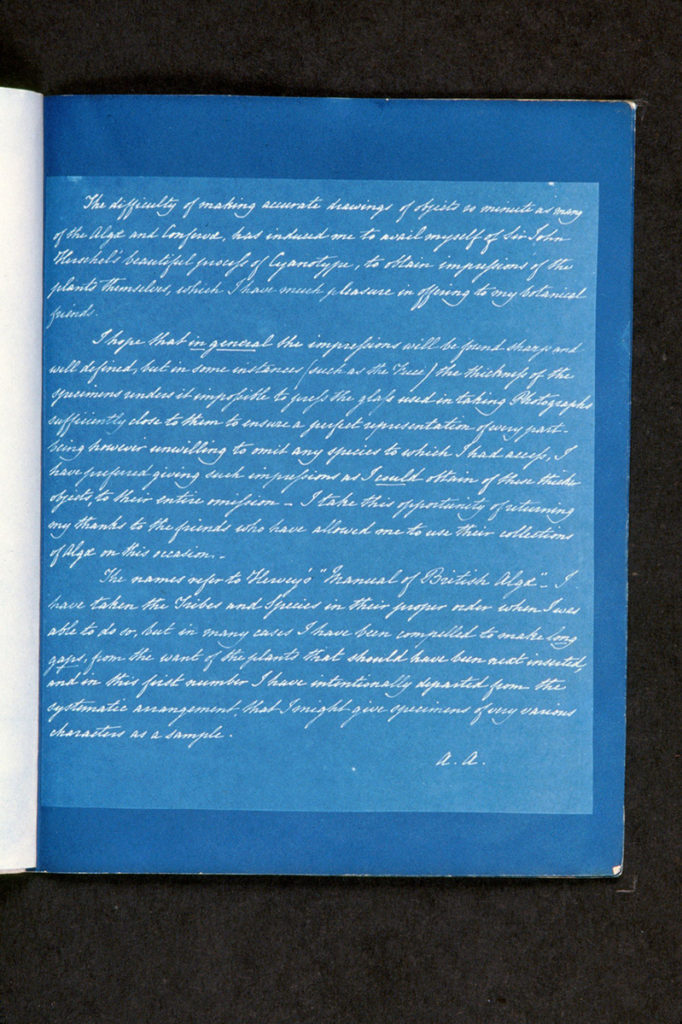 The difficulty of making accurate drawings of objects so minute as many
of the Algæ and Confervæ, has induced me to avail myself of Sir John
Herschel's beautiful process of Cyanotype, to obtain impressions of the
plants themselves, which I have much pleasure in offering to my botanical
friends.
I hope that in general the impressions will be found sharp and
well defined, but in some instances (such as the Fuci) the thickness of the
specimens renders it impossible to press the glass used in taking Photographs
sufficiently close to them to ensure a perfect representation of every part.
Being however unwilling to omit any species to which I had access, I
have preferred giving such impressions as I could obtain of these thicker
objects, to their entire omission – I take this opportunity of returning
my thanks to the friends who have allowed me to use their collections
of Algæ on this occasion. –
The names refer to Harvey's "Manual of British Algæ" – I
have taken the Tribes and Species in their proper order when I was
able to do so, but in many cases I have been compelled to make long
gaps, from the want of the plants that should have been next inserted,
and in this first number I have intentionally departed from the
systematic arrangement, that I might give specimens of very various
characters as a sample.
A. A.